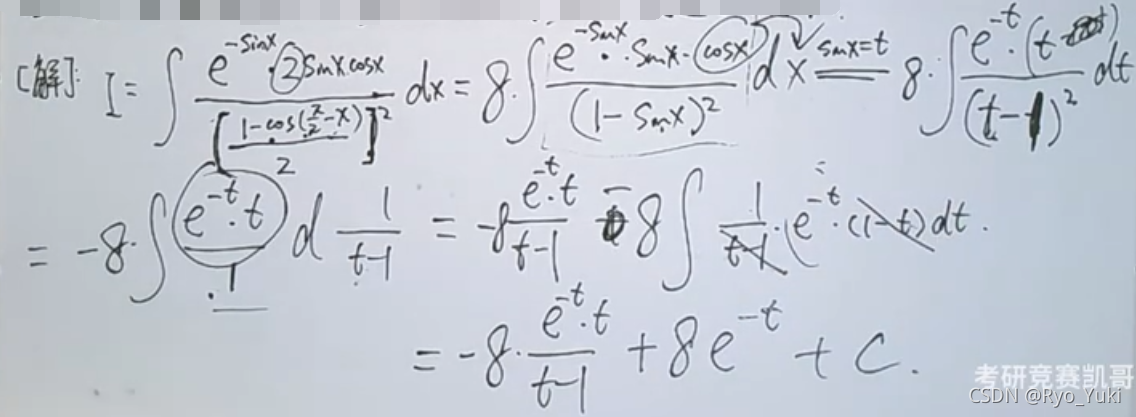 [解]: I = ∫ e^{-sinx}·2sinx.cosx / [ (1-cos(π/2-x)) / 2 ]^2 dx = 8·∫ e^{-sinx}·sinx·cosx / (1-sinx)^2 dx \overset{sinx=t}{=} 8·∫ e^{-t}·(t) / (t-1)^2 dt
= -8·∫ e^{-t}·t / 1 d 1/(t-1) = -8 e^{-t}·t / (t-1) - 8∫ 1/(t-1)·(e^{-t}·(1-t) dt.
= -8· e^{-t}·t / (t-1) + 8e^{-t} + C.
考研竞赛凯哥
CSDN @Ryo_Yuki